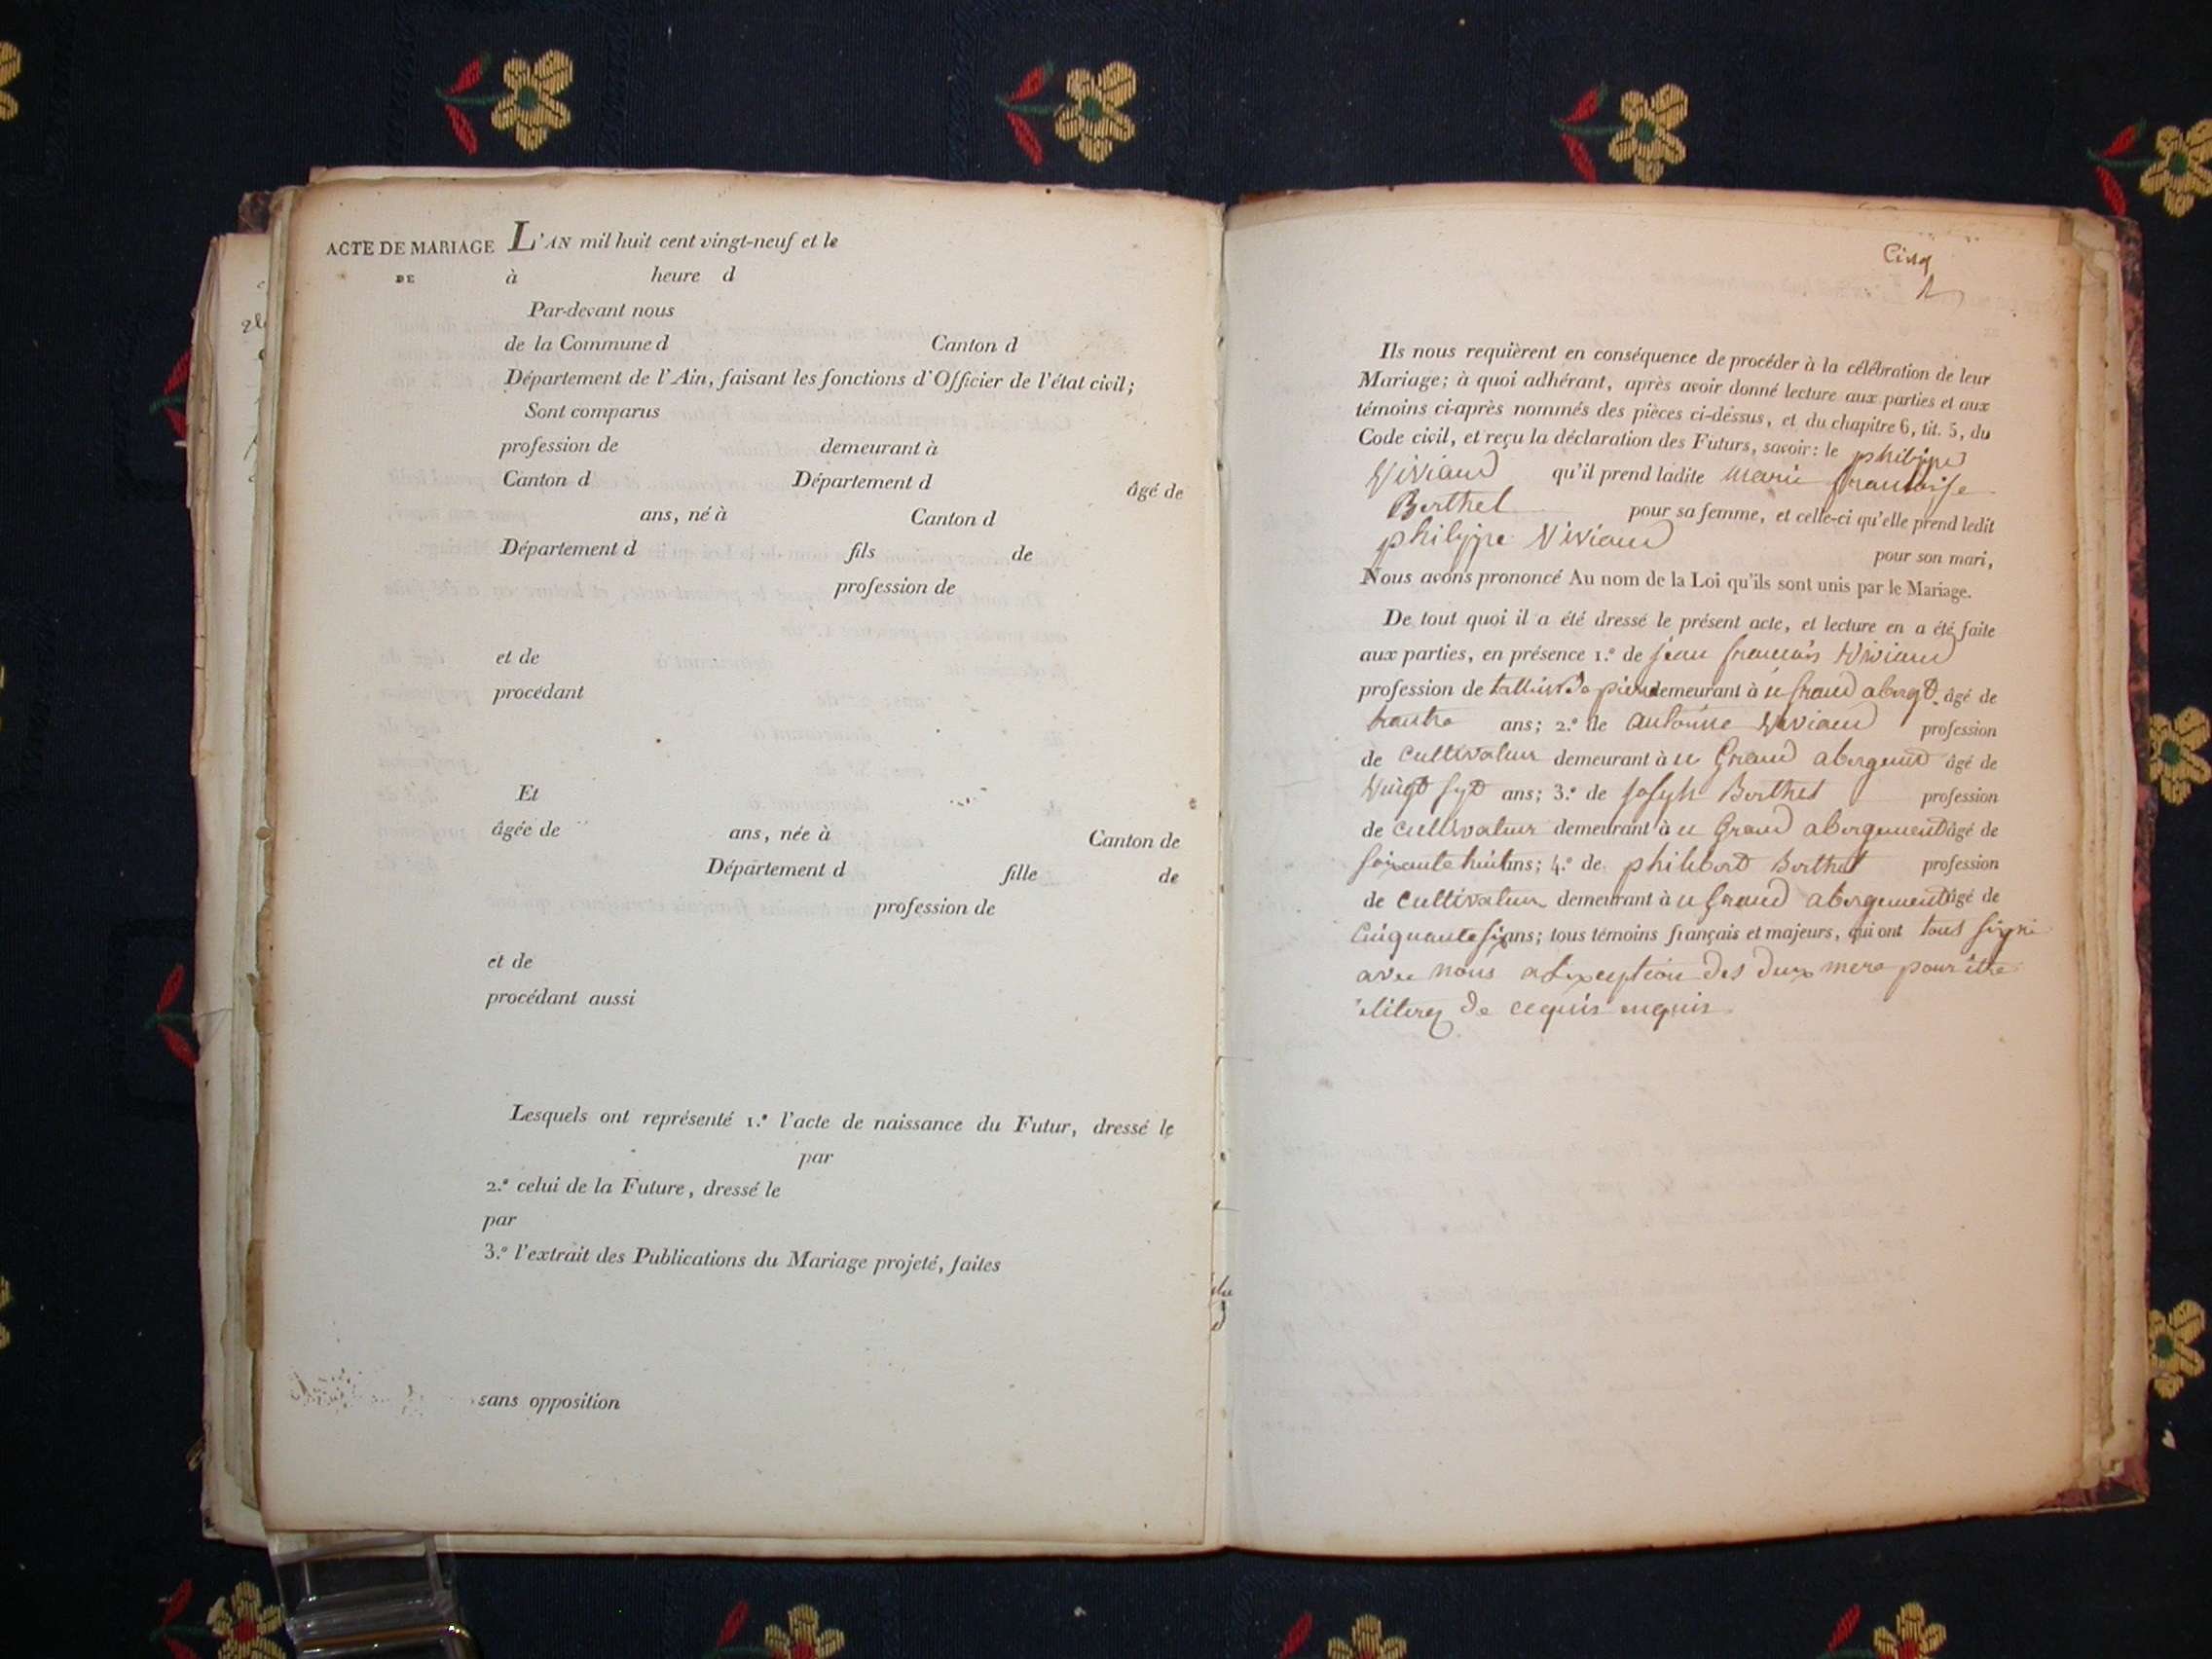 ACTE DE MARIAGE L'AN mil huit cent vingt-neuf et le
DE à heure d
Par-devant nous
de la Commune d Canton d
Département de l'Ain, faisant les fonctions d'Officier de l'état civil;
Sont comparus
profession de demeurant à
Canton d Département d âgé de
ans, né à Canton d
Département d fils de
profession de
et de
procédant
Et
âgée de ans, née à Canton de
Département d fille de
profession de
et de
procédant aussi
Lesquels ont représenté 1.° l'acte de naissance du Futur, dressé le
par
2.° celui de la Future, dressé le
par
3.° l'extrait des Publications du Mariage projeté, faites
sans opposition
Cinq
Ils nous requièrent en conséquence de procéder à la célébration de leur
Mariage; à quoi adhérant, après avoir donné lecture aux parties et aux
témoins ci-après nommés des pièces ci-dessus, et du chapitre 6, tit. 5, du
Code civil, et reçu la déclaration des Futurs, savoir: le philippe
Viviand qu'il prend ladite marie francoise
Berthet pour sa femme, et celle-ci qu'elle prend ledit
philippe Viviand pour son mari,
Nous avons prononcé Au nom de la Loi qu'ils sont unis par le Mariage.
De tout quoi il a été dressé le présent acte, et lecture en a été faite
aux parties, en présence 1.° de jean francois Viviand
profession de demeurant à grand âgé de
trente ans; 2.° de antoine Viviand profession
de cultivateur demeurant à u Grand abergement âgé de
Vingt sept ans; 3.° de joseph Berthet profession
de cultivateur demeurant à u Grand abergement âgé de
soixante huit ans; 4.° de philibert Berthet profession
de cultivateur demeurant à u grand abergement âgé de
cinquante six ans; tous témoins français et majeurs, qui ont tous signé
avec nous a Lexception des deux mere pour être
de